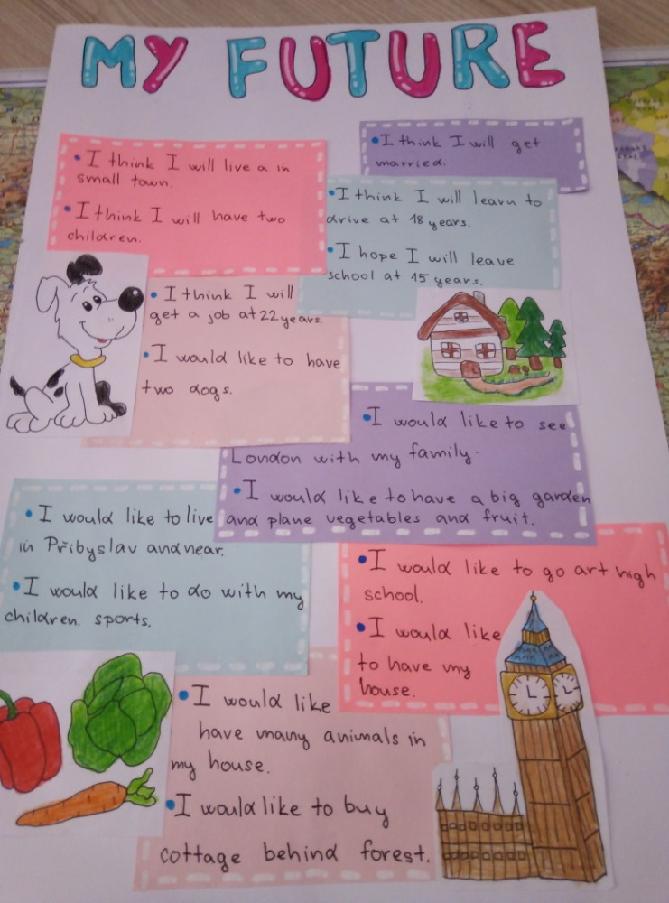 MY FUTURE
• I think I will live a in
small town.
• I think I will have two
children.
• I think I will get
married.
• I think I will learn to
drive at 18 years.
• I hope I will leave
school at 15 years.
• I think I will
get a job at 22 years
• I would like to have
two dogs.
• I would like to see
London with my family.
• I would like to have a big garden
and plane vegetables and fruit.
• I would like to live
in Přibyslav and near.
• I would like to do with my
children sports.
• I would like to go art high
school.
• I would like
to have my
house.
• I would like
have many animals in
my house.
• I would like to buy
cottage behind forest.